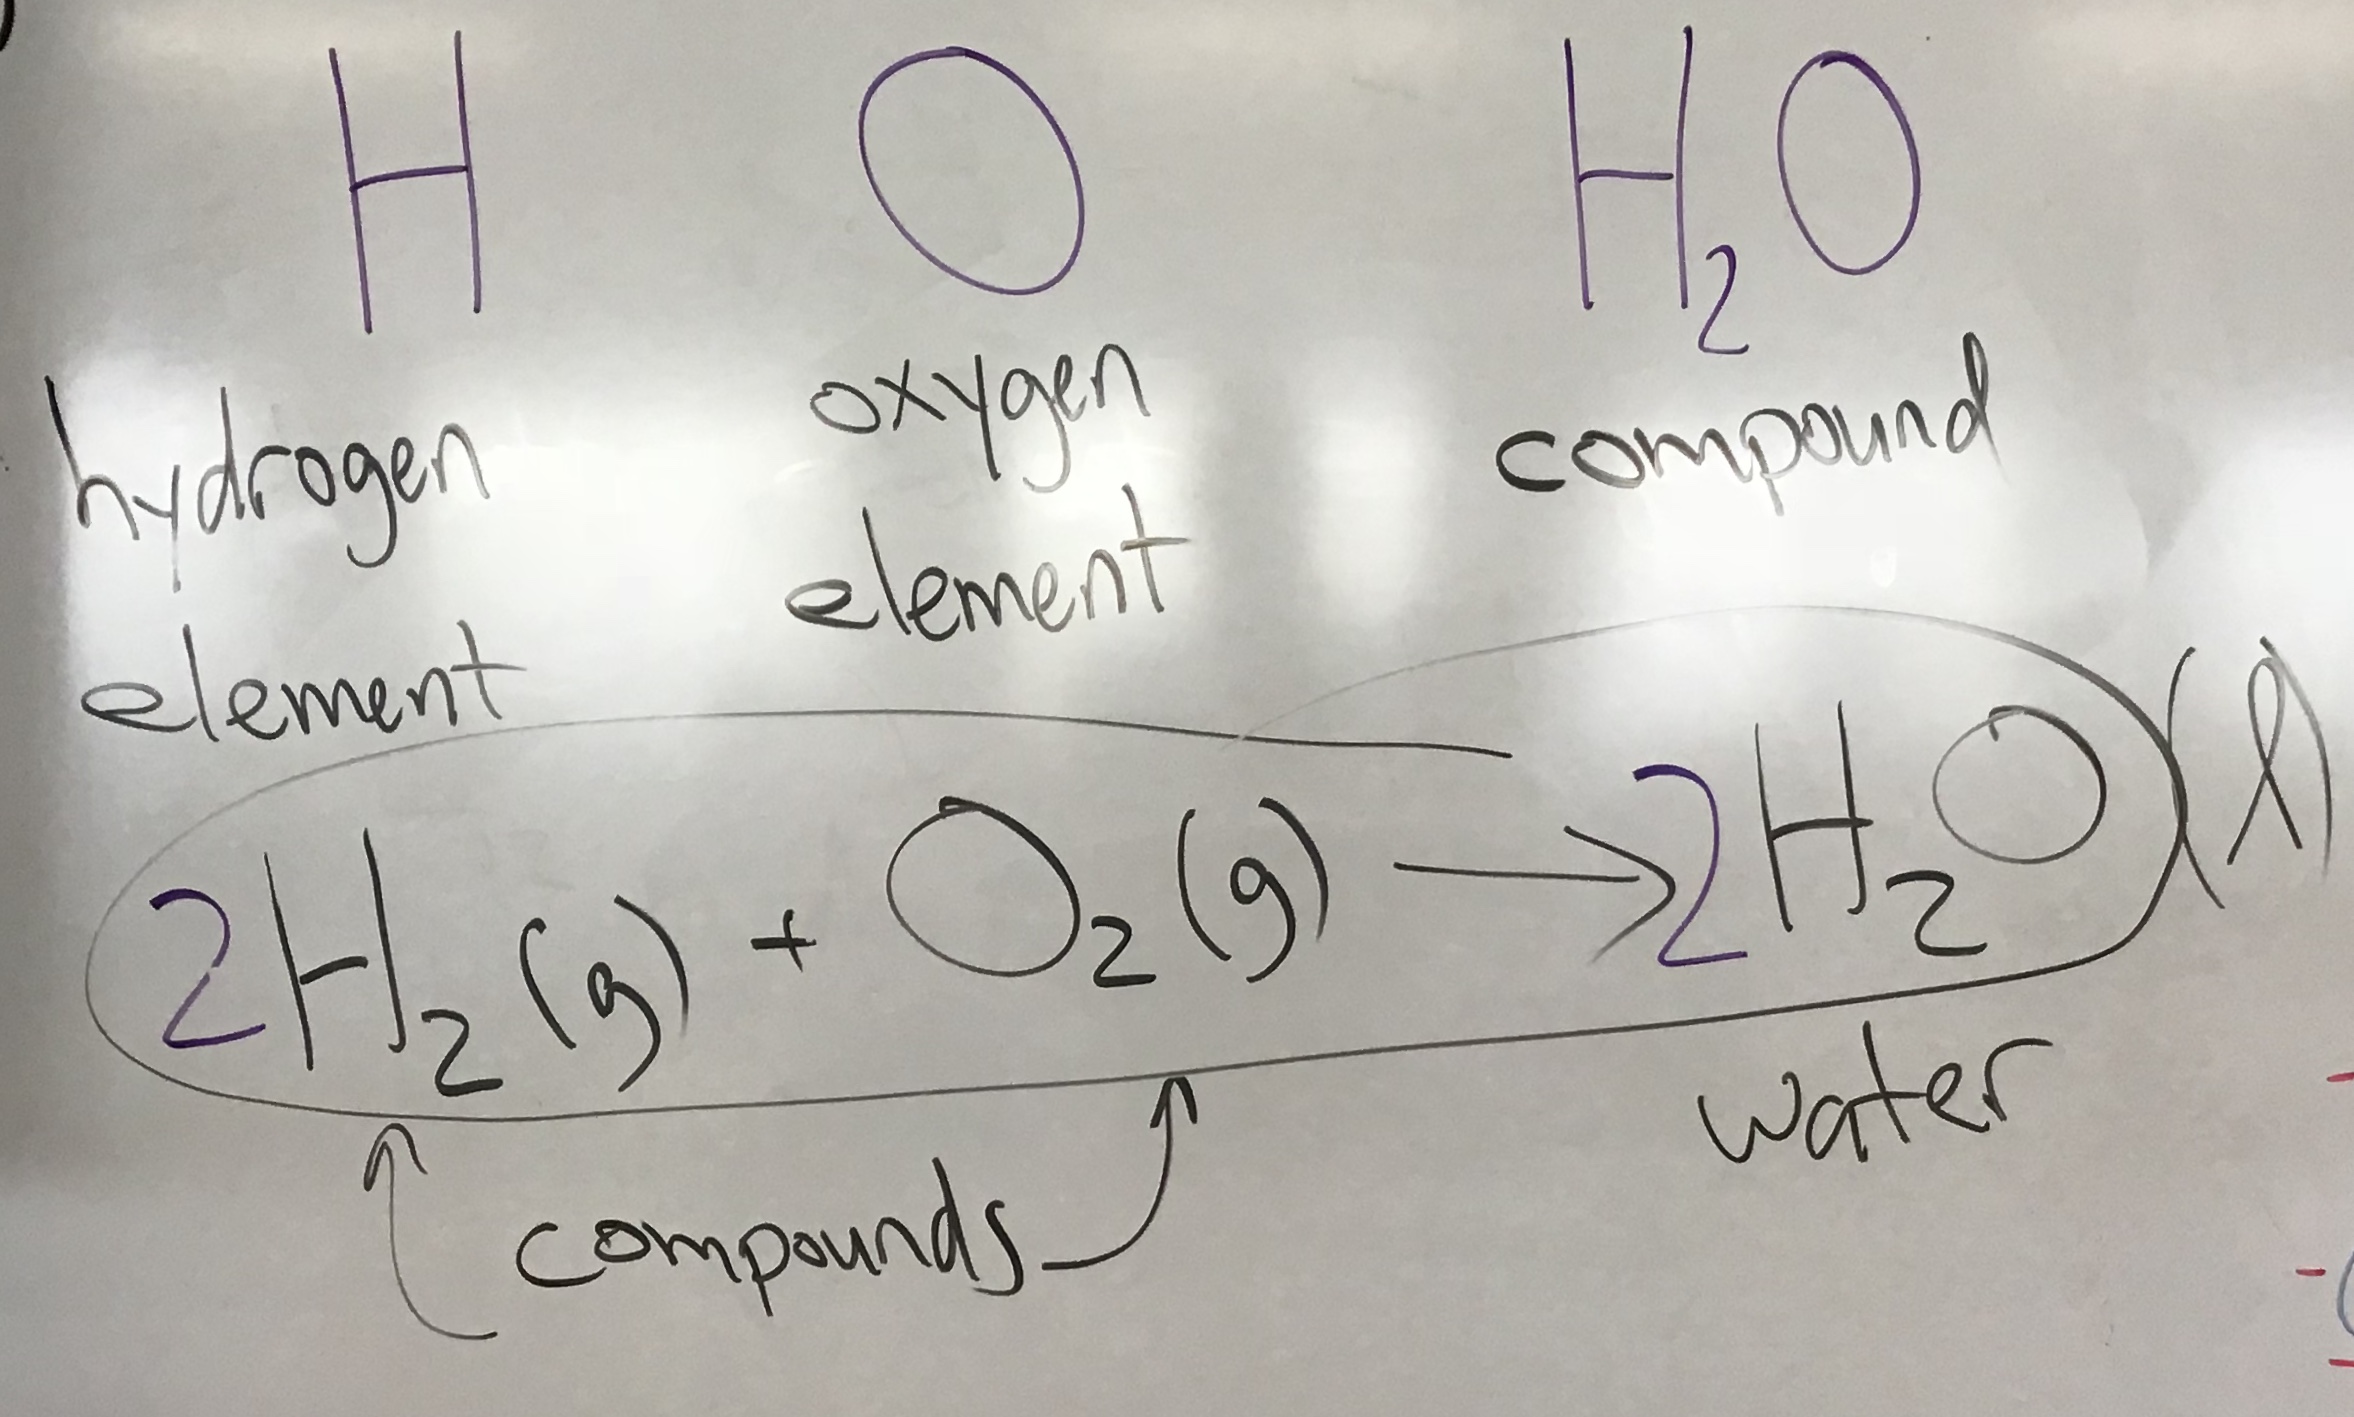 H O H₂O
hydrogen element
oxygen element
compound
2H₂(g) + O₂(g) → 2H₂O(l)
water
compounds